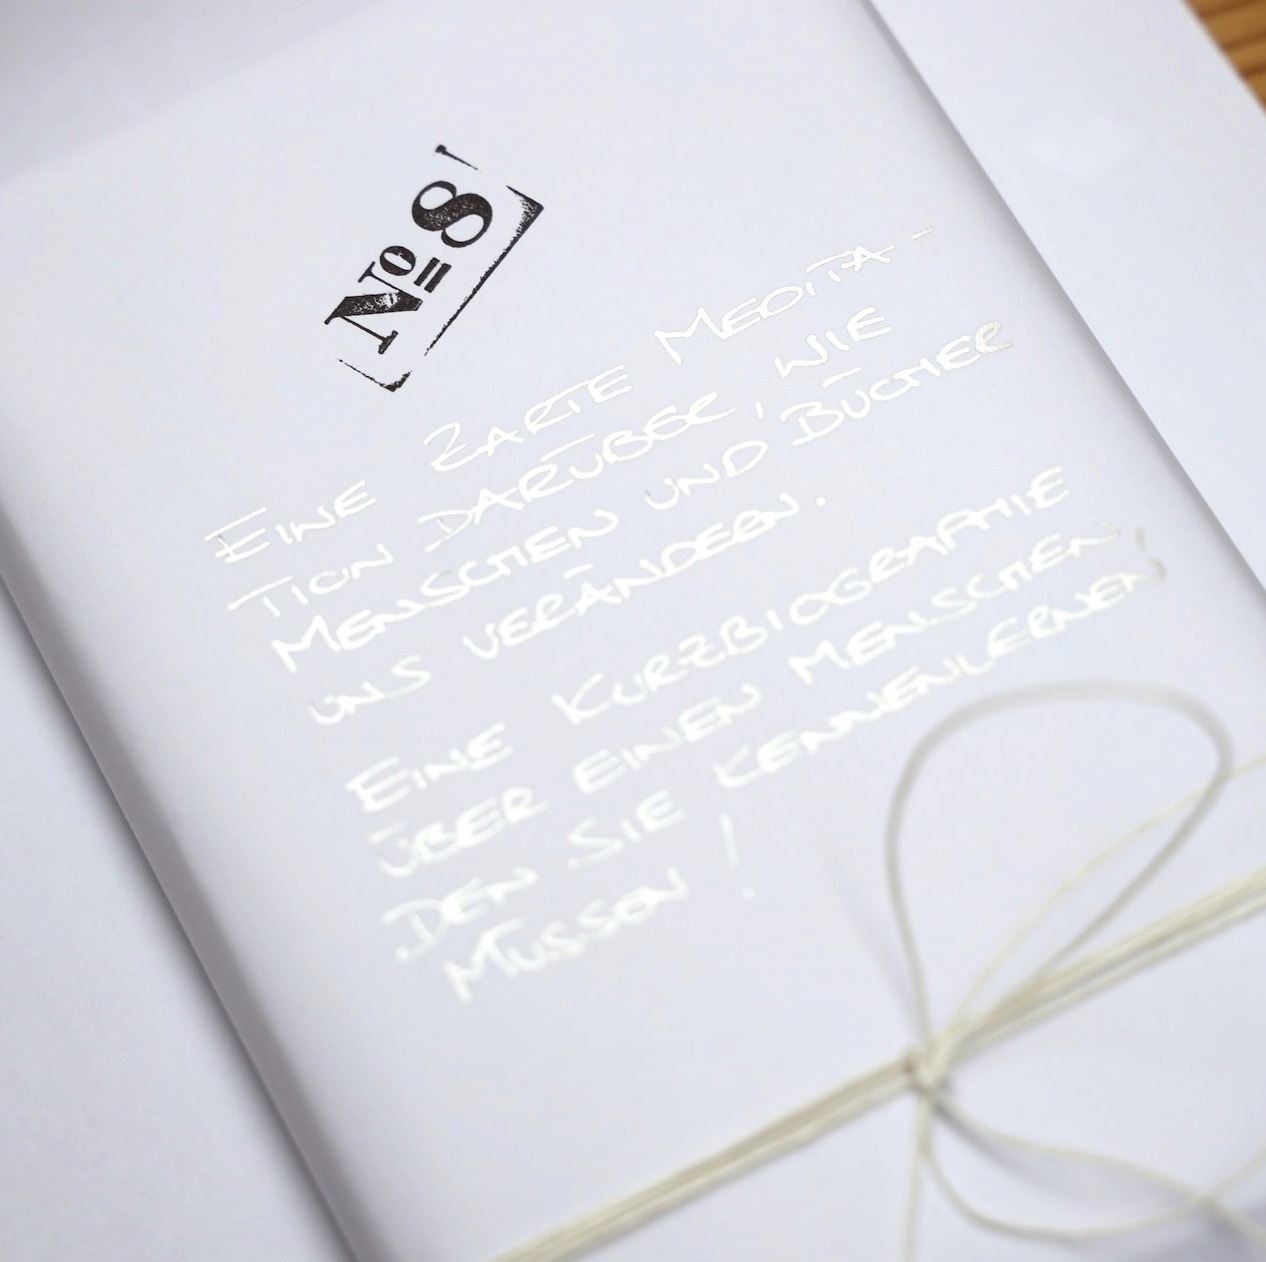 Nº 8
EINE ZARTE MEDITA-
TION DARÜBER, WIE
MENSCHEN UND BÜCHER
UNS VERÄNDERN.
EINE KURZBIOGRAPHIE
ÜBER EINEN MENSCHEN,
DEN SIE KENNENLERNEN
MÜSSEN!